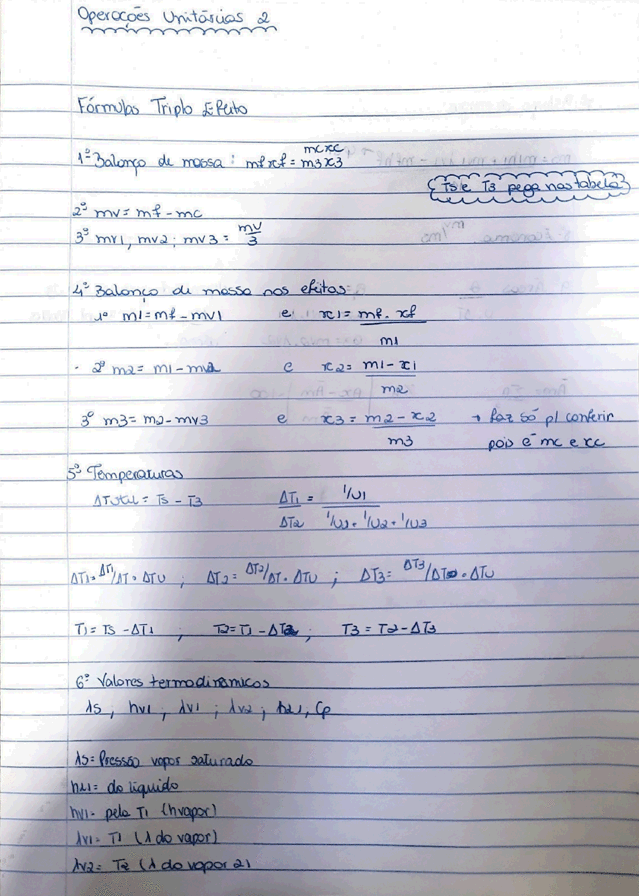 Operações Unitárias 2
Fórmulas Triplo Efeito
mcxc
1º Balanço de massa: mfxf = m3x3
Ts e T3 pega nas tabela
2º mv = mf - mc
3º mv1, mv2; mv3 = mv/3
4º Balanço de massa nos efeitos:
1º m1 = mf - mv1 e x1 = mf. xf / m1
- 2º m2 = m1 - mv2 e x2 = m1 - x1 / m2
3º m3 = m2 - mv3 e x3 = m2 - x2 / m3 → faz só p/ conferir
pois é mc e xc
5º Temperaturas
ΔTotal = Ts - T3 ΔT1 / ΔT2 = 1/U1 / 1/U1 + 1/U2 + 1/U3
ΔT1 = ΔT1/ΔT . ΔTU ; ΔT2 = ΔT2/ΔT . ΔTU ; ΔT3 = ΔT3/ΔT . ΔTU
T1 = Ts - ΔT1 ; T2 = T1 - ΔT2 ; T3 = T2 - ΔT3
6º Valores termodinâmicos
λs, hv1, λv1; λv2; hL1, Cp
λs = Pressão vapor saturado
hL1 = do líquido
hv1 = pela T1 (hvapor)
λv1 = T1 (λ do vapor)
λv2 = T2 (λ do vapor 2)